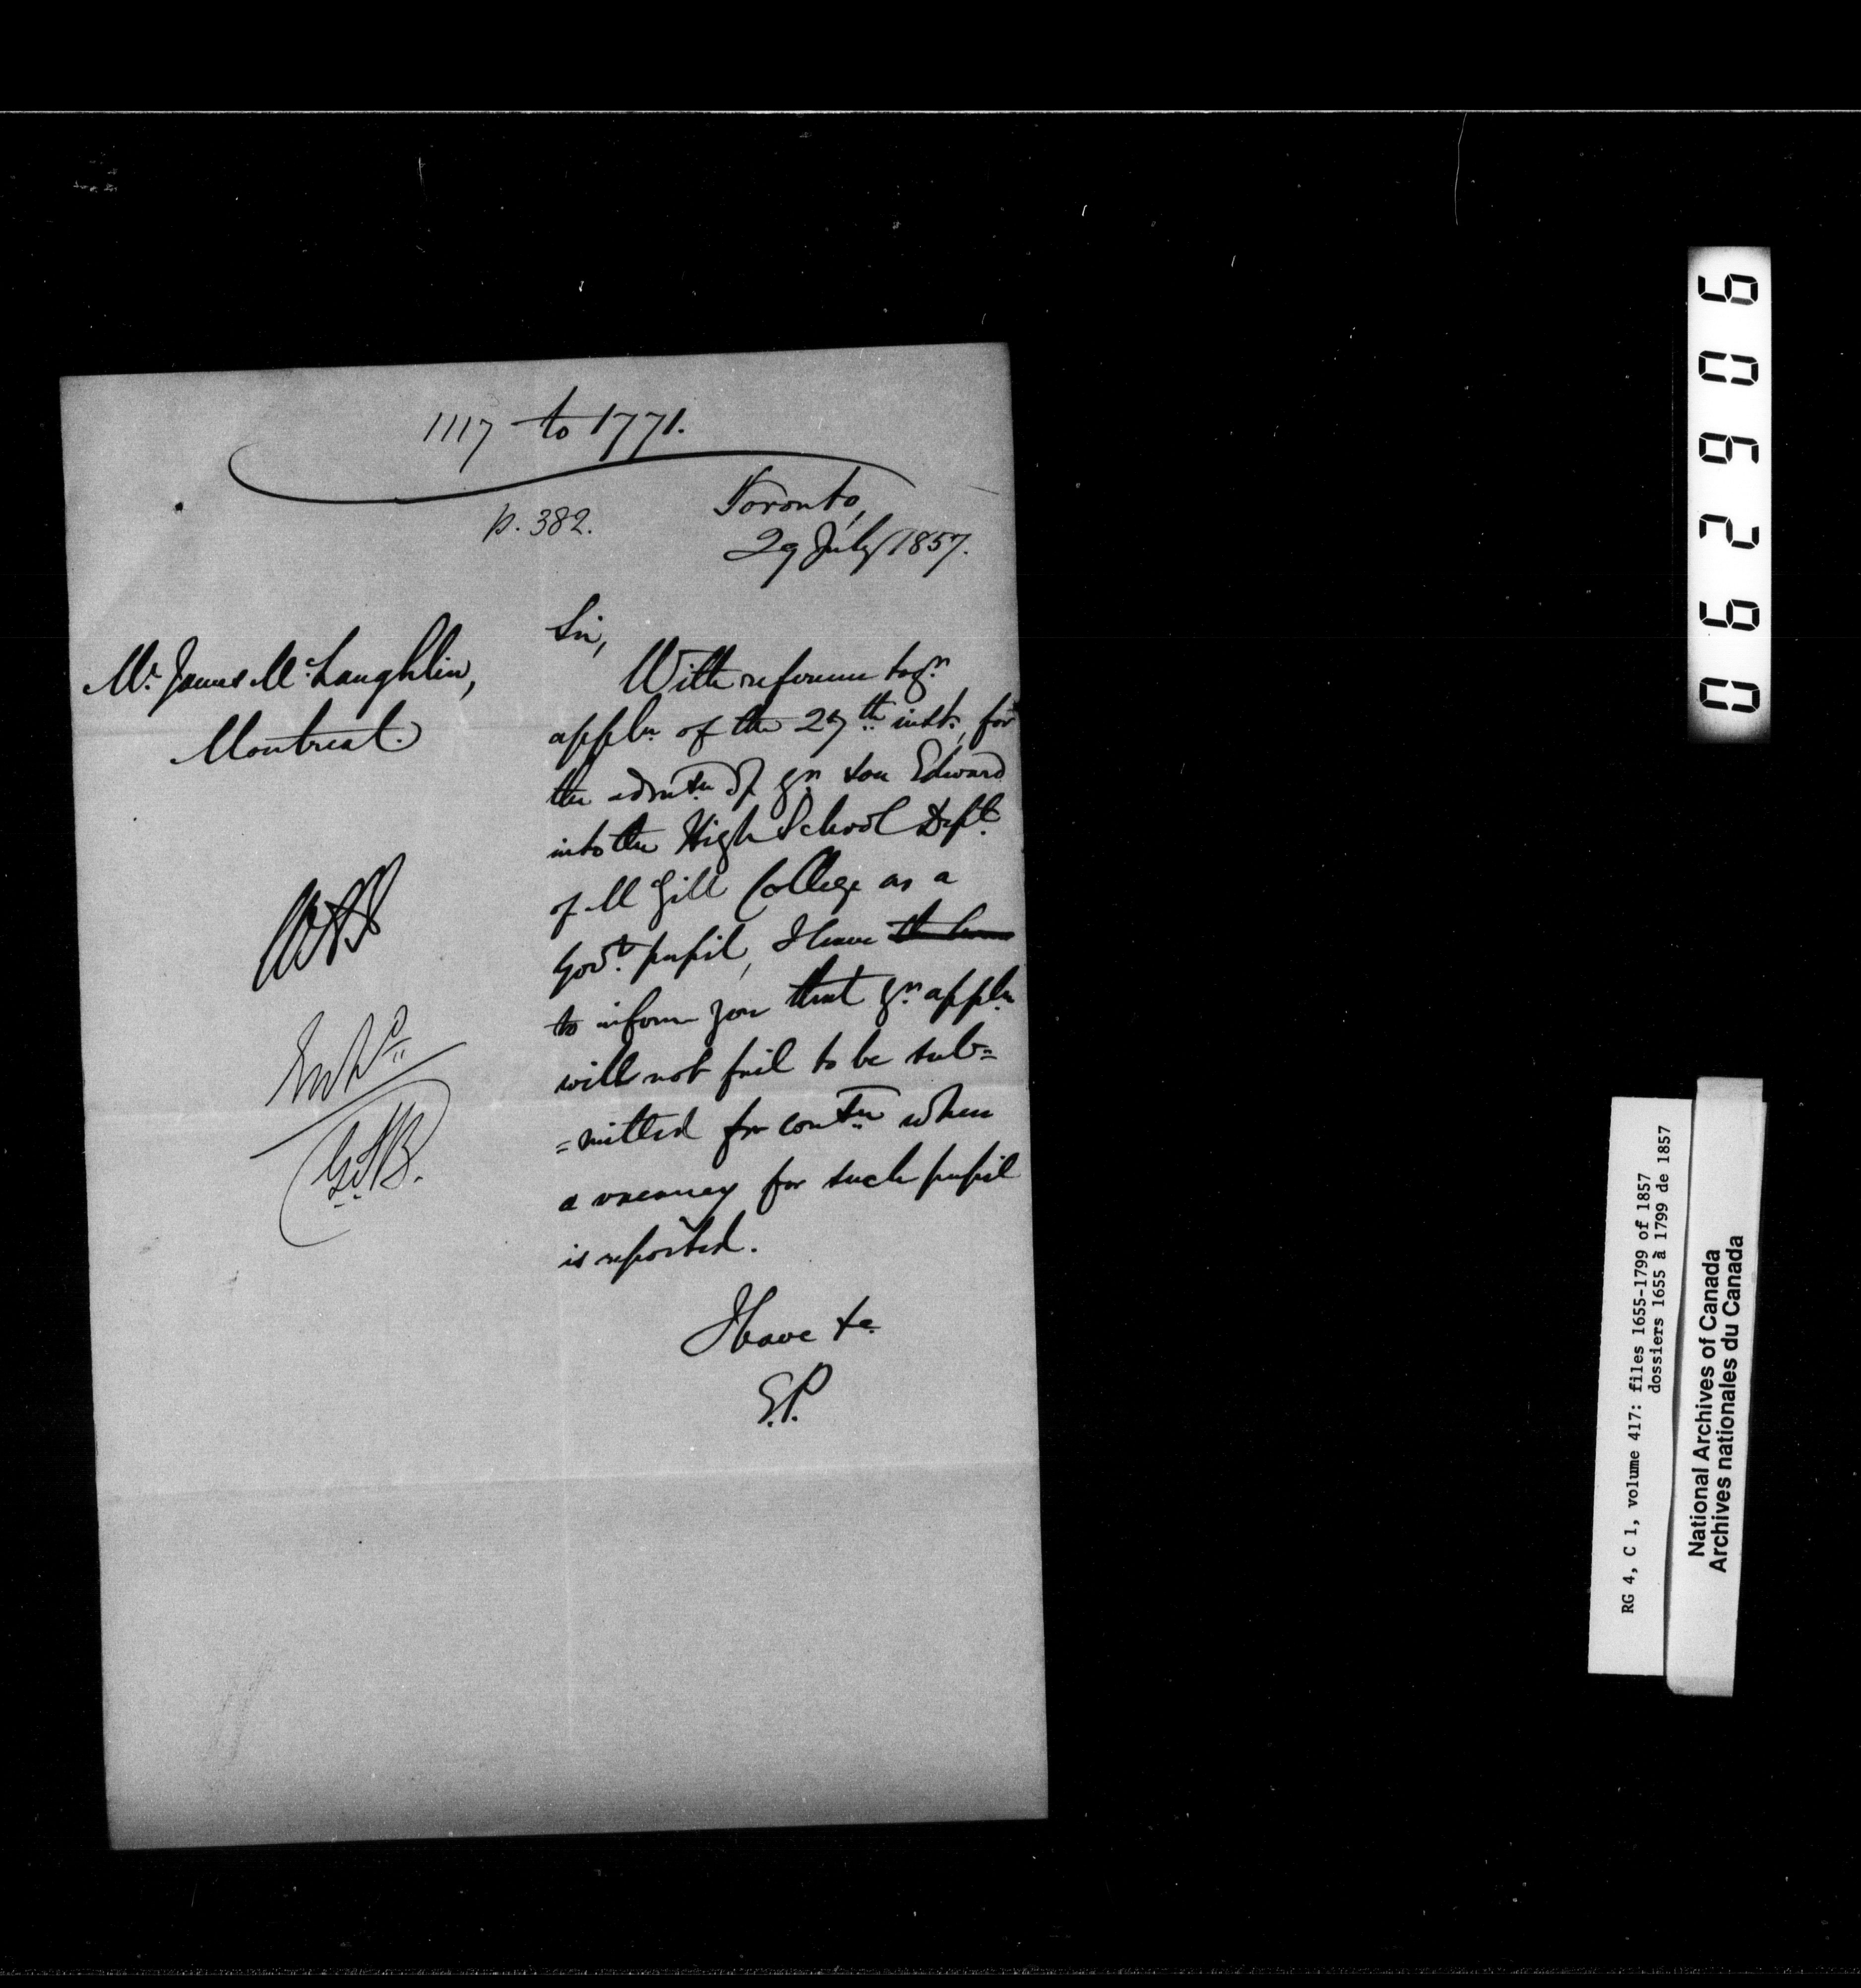 1117 to 1771.
p. 382.
Toronto,
29 July 1857.
Mr. James McLaughlin,
Montreal.
Sir,
With reference to yr.
appln. of the 27th. inst., for
the admtn. of yr. son Edward
into the High School Dept.
of McGill College as a
Govt. pupil, I have
to inform you that yr. appln.
will not fail to be sub=
=mitted for contn. when
a vacancy for such pupil
is reported.
I have &c.
E.P.
062906
RG 4, C 1, volume 417: files 1655-1799 of 1857
dossiers 1655 à 1799 de 1857
National Archives of Canada
Archives nationales du Canada